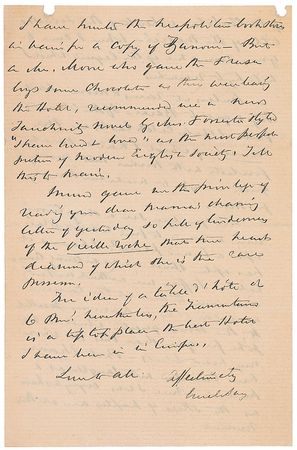 I have hunted the Neapolitan bookstores
in vain for a Copy of Zanoni — But
a Mr. who gave the Fraser
boys some Chocolate as they were leaving
the Hotel, recommended me a new
Tauchnitz novel by Mrs. Forrester styled
"I have lived & loved", as the most perfect
picture of Modern English Society. I let
that to
gave me the privilege of
reading your dear Mamma's charming
letter of yesterday so full of tenderness
of the Vieille Roche that true hearts
of which she is the rare
Possessor.
The idea of a table d'hôte at
6 Pm! nevertheless, the Tramontano
is a tip top place — the best Hotel
I have been in in Europe.
Love to All. Affectionately